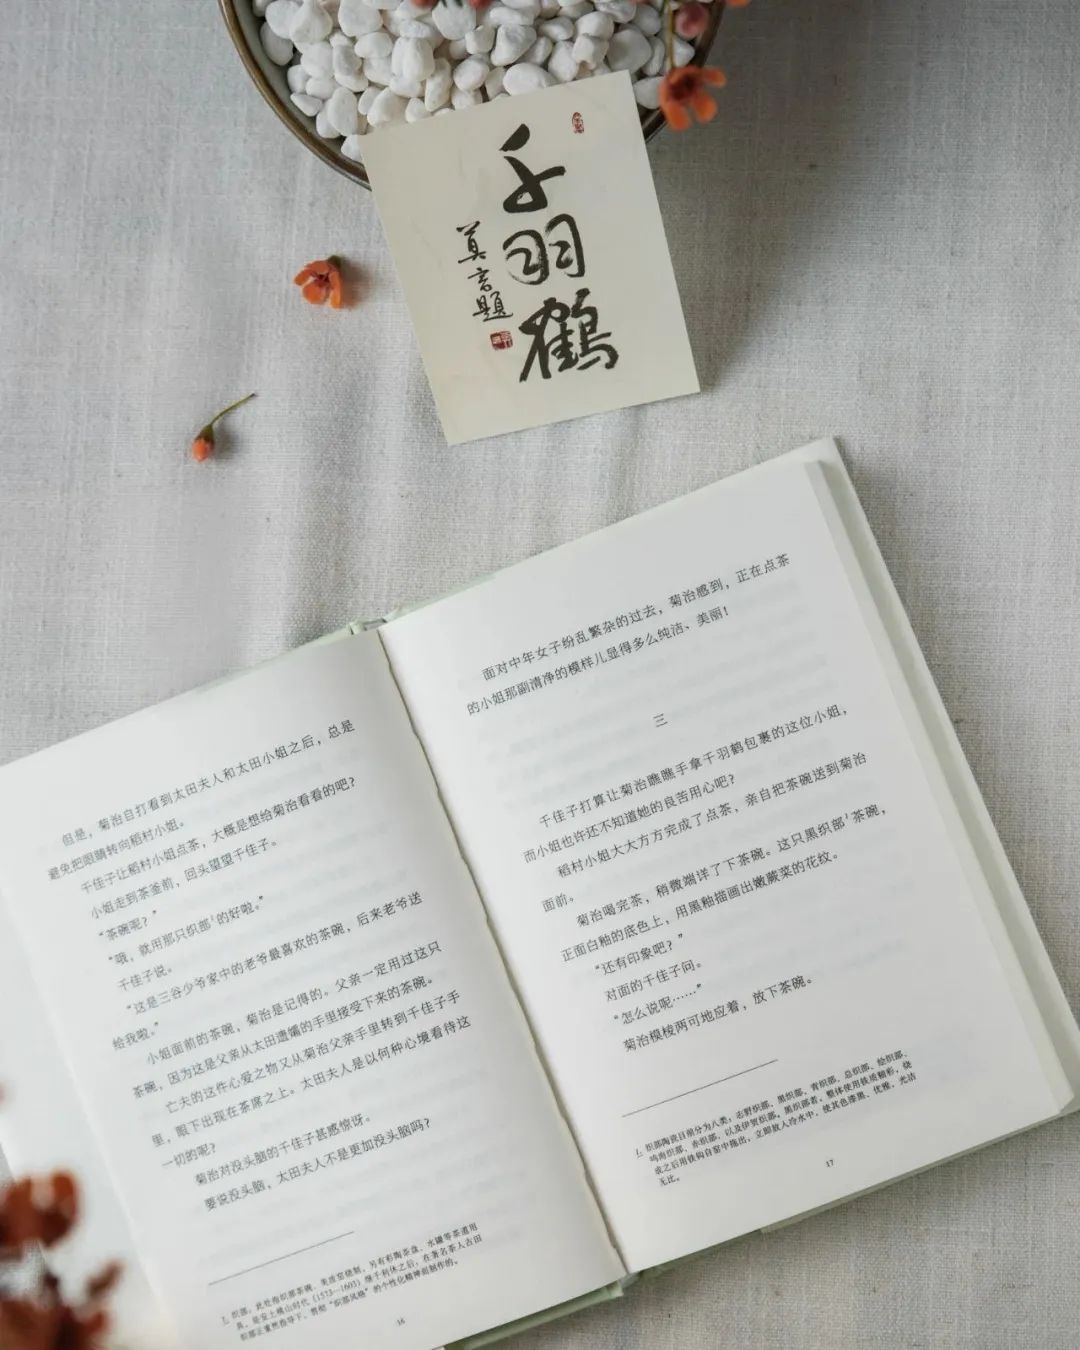 千羽鶴
莫言題
但是，菊治自打看到太田夫人和太田小姐之后，总是
避免把眼睛转向稻村小姐。
千佳子让稻村小姐点茶，大概是想给菊治看看的吧？
小姐走到茶釜前，回头望望千佳子。
“茶碗呢？”
“哦，就用那只织部¹的好啦。”
千佳子说。
“这是三谷少爷家中的老爷最喜欢的茶碗，后来老爷送
给我啦。”
小姐面前的茶碗，菊治是记得的。父亲一定用过这只
茶碗，因为这是父亲从太田遗孀的手里接受下来的茶碗。
亡夫的这件心爱之物又从菊治父亲手里转到千佳子手
里，眼下出现在茶席之上。太田夫人是以何种心境看待这
一切的呢？
菊治对没头脑的千佳子甚感惊讶。
要说没头脑，太田夫人不是更加没头脑吗？
1. 织部：此处指织部茶碗，美浓窑烧制，另有彩陶茶盘、水罐等茶道用
具，是安土桃山时代（1573—1603）继千利休之后，在著名茶人古田
织部正重然指导下，贯彻“织部风格”的个性化精神而制作的。
16
面对中年女子纷乱繁杂的过去，菊治感到，正在点茶
的小姐那副清净的模样儿显得多么纯洁、美丽！
三
千佳子打算让菊治瞧瞧手拿千羽鹤包裹的这位小姐，
而小姐也许还不知道她的良苦用心吧？
稻村小姐大大方方完成了点茶，亲自把茶碗送到菊治
面前。
菊治喝完茶，稍微端详了下茶碗。这只黑织部¹茶碗，
正面白釉的底色上，用黑釉描画出嫩蕨菜的花纹。
“还有印象吧？”
对面的千佳子问。
“怎么说呢……”
菊治模棱两可地应着，放下茶碗。
1. 织部陶瓷目前分为八类，志野织部、黑织部、青织部、总织部、绘织部、
鸣海织部、赤织部，以及伊贺织部。黑织部者，整体使用铁质釉彩，烧
成之后用铁钩自窑中拖出，立即放入冷水中，使其色漆黑、优雅，光洁
无比。
17